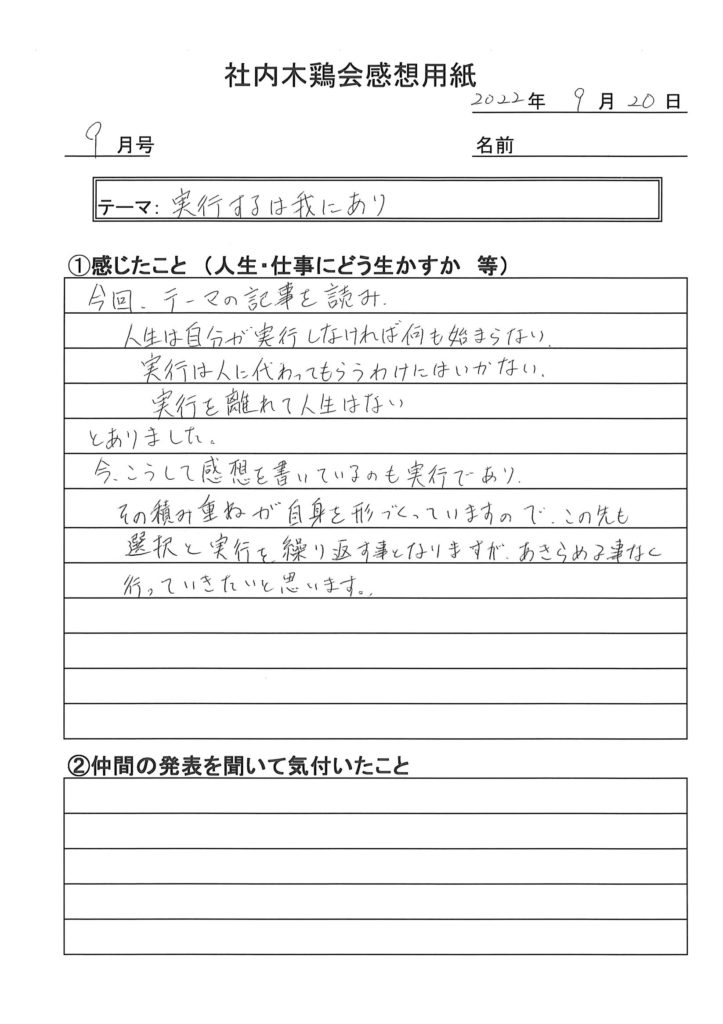 社内木鶏会感想用紙
2022年 9月20日
9月号 名前
テーマ: 実行するは我にあり
①感じたこと (人生・仕事にどう生かすか 等)
今回、テーマの記事を読み、
人生は自分が実行しなければ何も始まらない、
実行は人に代わってもらうわけにはいかない、
実行を離れて人生はない
とありました。
今、こうして感想を書いているのも実行であり、
その積み重ねが自身を形づくっていますので、この先も
選択と実行を、繰り返す事となりますが、あきらめる事なく
行っていきたいと思います。
②仲間の発表を聞いて気付いたこと